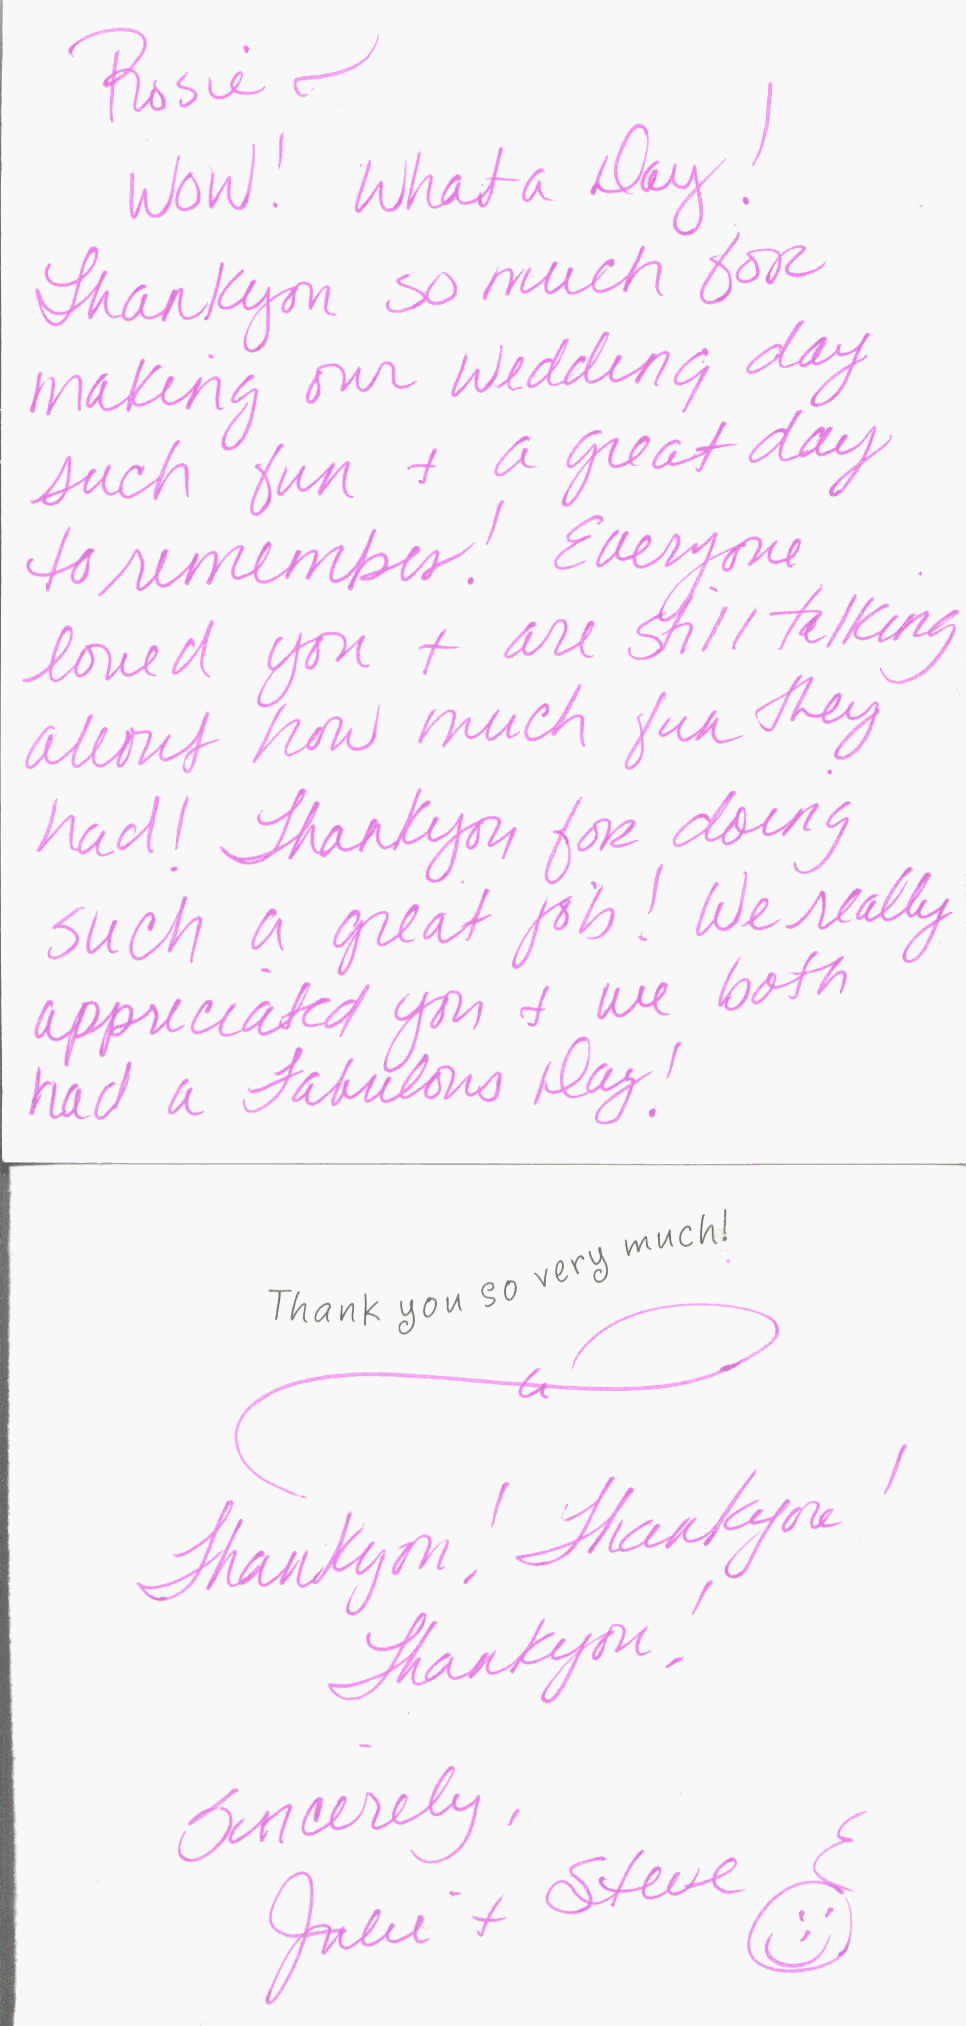 Rosie ~
WOW! What a Day!
Thankyou so much for
making our wedding day
such fun + a great day
to remember! Everyone
loved you + are still talking
about how much fun they
had! Thankyou for doing
such a great job! We really
appreciated you + we both
had a Fabulous Day!
Thank you so very much!
Thankyou! Thankyou!
Thankyou!
Sincerely,
Julie + Steve